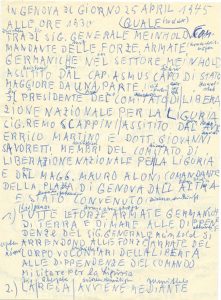 IN GENOVA IL GIORNO 25 APRILE 1945
ALLE ORE 1930 (QUALE
TRA IL SIG. GENERALE MEINHOLD Com
MANDANTE DELLE FORZE ARMATE
GERMANICHE NEL SETTORE MEINHOLD
ASSISTITO DAL CAP. ASMUS CAPO DI STATO
MAGGIORE DA UNA PARTE;
IL PRESIDENTE DEL COMITATO DI LIBERA
ZIONE NAZIONALE PER LA LIGURIA
SIG. REMO SCAPPINI, ASSISTITO DALL
ERRICO MARTINO E DOTT. GIOVANNI
SAVORETTI MEMBRI DEL COMITATO
LIBERAZIONE NAZIONALE PER LA LIGURIA
E DAL MAGG. MAURO ALONI COMANDANTE
DELLA PIAZZA DI GENOVA DALL'ALTRA
È STATO CONVENUTO
1) TUTTE LE FORZE ARMATE GERMANICHE
DI TERRA E DI MARE ALLE DIPEN
DENZE DEL SIG. GENERALE MEINHOLD SI
ARRENDONO ALLE FORZE ARMATE DEL
CORPO VOLONTARI DELLA LIBERTÀ
ALLE DIPENDENZE DEL COMANDO
Militare per la Liguria
2) LA RESA AVVIENE MEDIANTE